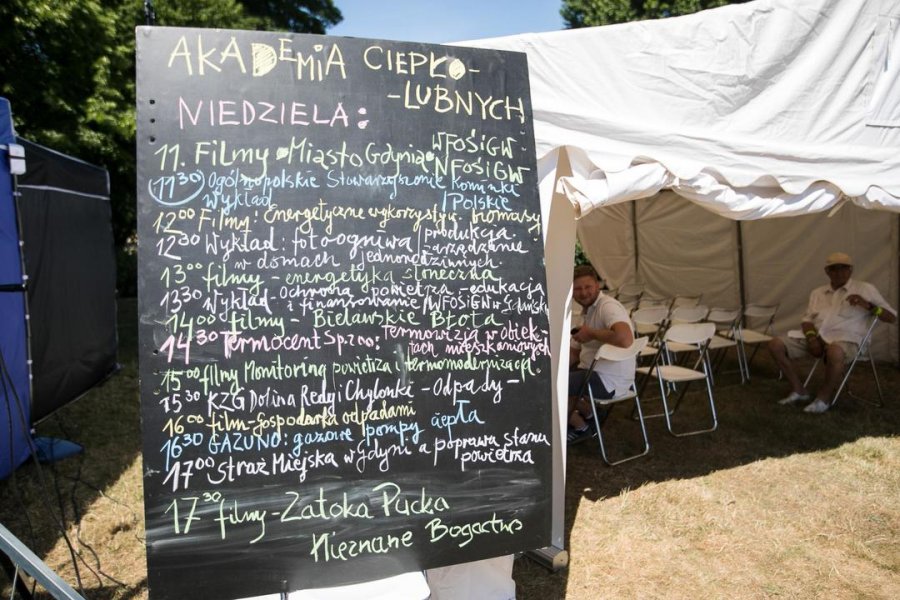 AKADEMIA CIEPŁO-
-LUBNYCH
NIEDZIELA:
11. Filmy "Miasto Gdynia" WFOŚiGW
NFOŚiGW
11 30 Ogólnopolskie Stowarzyszenie Kominki
Wykład /Polskie
12 00 Filmy: Energetyczne wykorzyst. biomasy
12 30 Wykład: fotoogniwa /produkcja
w domach jednorodzinnych. zarządzanie
13 00 filmy - energetyka słoneczna
13 30 Wykład - ochrona powietrza - edukacja
i finansowanie /WFOŚiGW w Gdańsku
14 00 filmy - Bielawskie Błota
14 30 Termocent Sp. zoo; Termowizja w obiek-
tach mieszkaniowych
15 00 filmy Monitoring powietrza i termomodernizacja.
15 30 KZG Dolina Redy i Chylonki - Odpady -
16 00 film - gospodarka odpadami
16 30 GAZUNO: gazowe pompy ciepła
17 00 Straż Miejska w Gdyni a poprawa stanu
powietrza
17 30 filmy - Zatoka Pucka
Nieznane Bogactwo